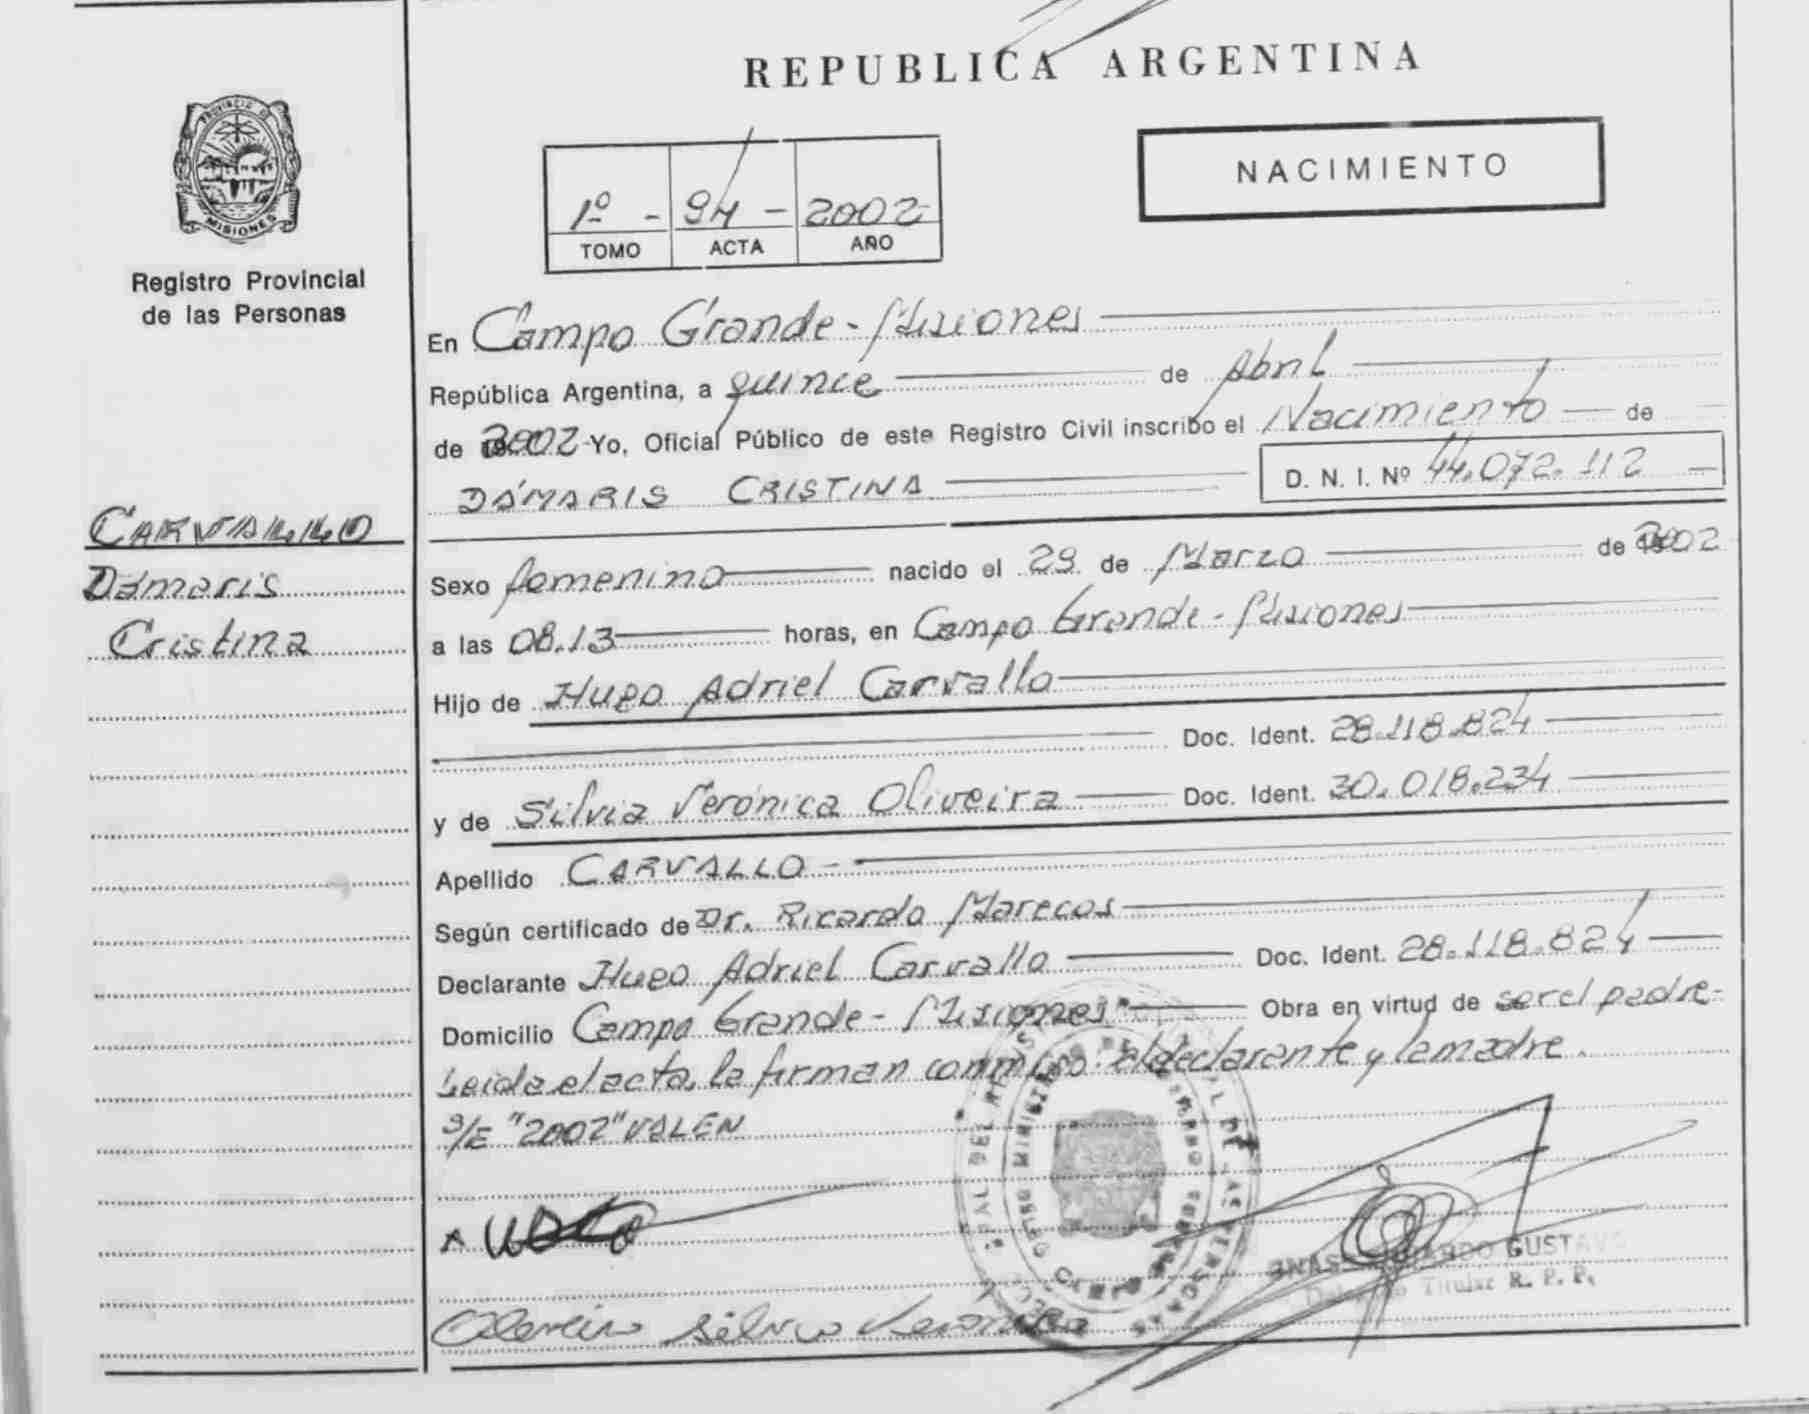 REPUBLICA ARGENTINA
NACIMIENTO
PROVINCIA DE
MISIONES
Registro Provincial
de las Personas
1º - 94 - 2002
TOMO ACTA AÑO
En Campo Grande - Misiones
República Argentina, a quince de Abril
de 2002 Yo, Oficial Público de este Registro Civil inscribo el Nacimiento de
DÁMARIS CRISTINA D. N. I. Nº 44.072.112
CARVALLO
Dámaris
Cristina
Sexo femenino nacido el 29 de Marzo de 2002
a las 08.13 horas, en Campo Grande - Misiones
Hijo de Hugo Adriel Carvallo
Doc. Ident. 28.118.824
y de Silvia Verónica Oliveira Doc. Ident. 30.018.234
Apellido CARVALLO
Según certificado de Dr. Ricardo Marecos
Declarante Hugo Adriel Carvallo Doc. Ident. 28.118.824
Domicilio Campo Grande - Misiones Obra en virtud de ser el padre -
Leida el acta, la firman conmigo: el declarante y la madre.
S/E "2002" VALEN
GUSTAVO
Titular R. P. P.
Silvia Verónica